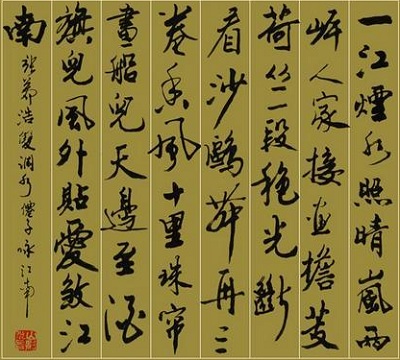 一江煙水照晴嵐兩
岸人家接畫檐芰
荷丛一段穐光
看沙鷗舞再三
卷香風十里珠帘
畫船兒天邊至酒
旗兒風外貼愛煞江
南
張養浩雙調水僊子咏江南